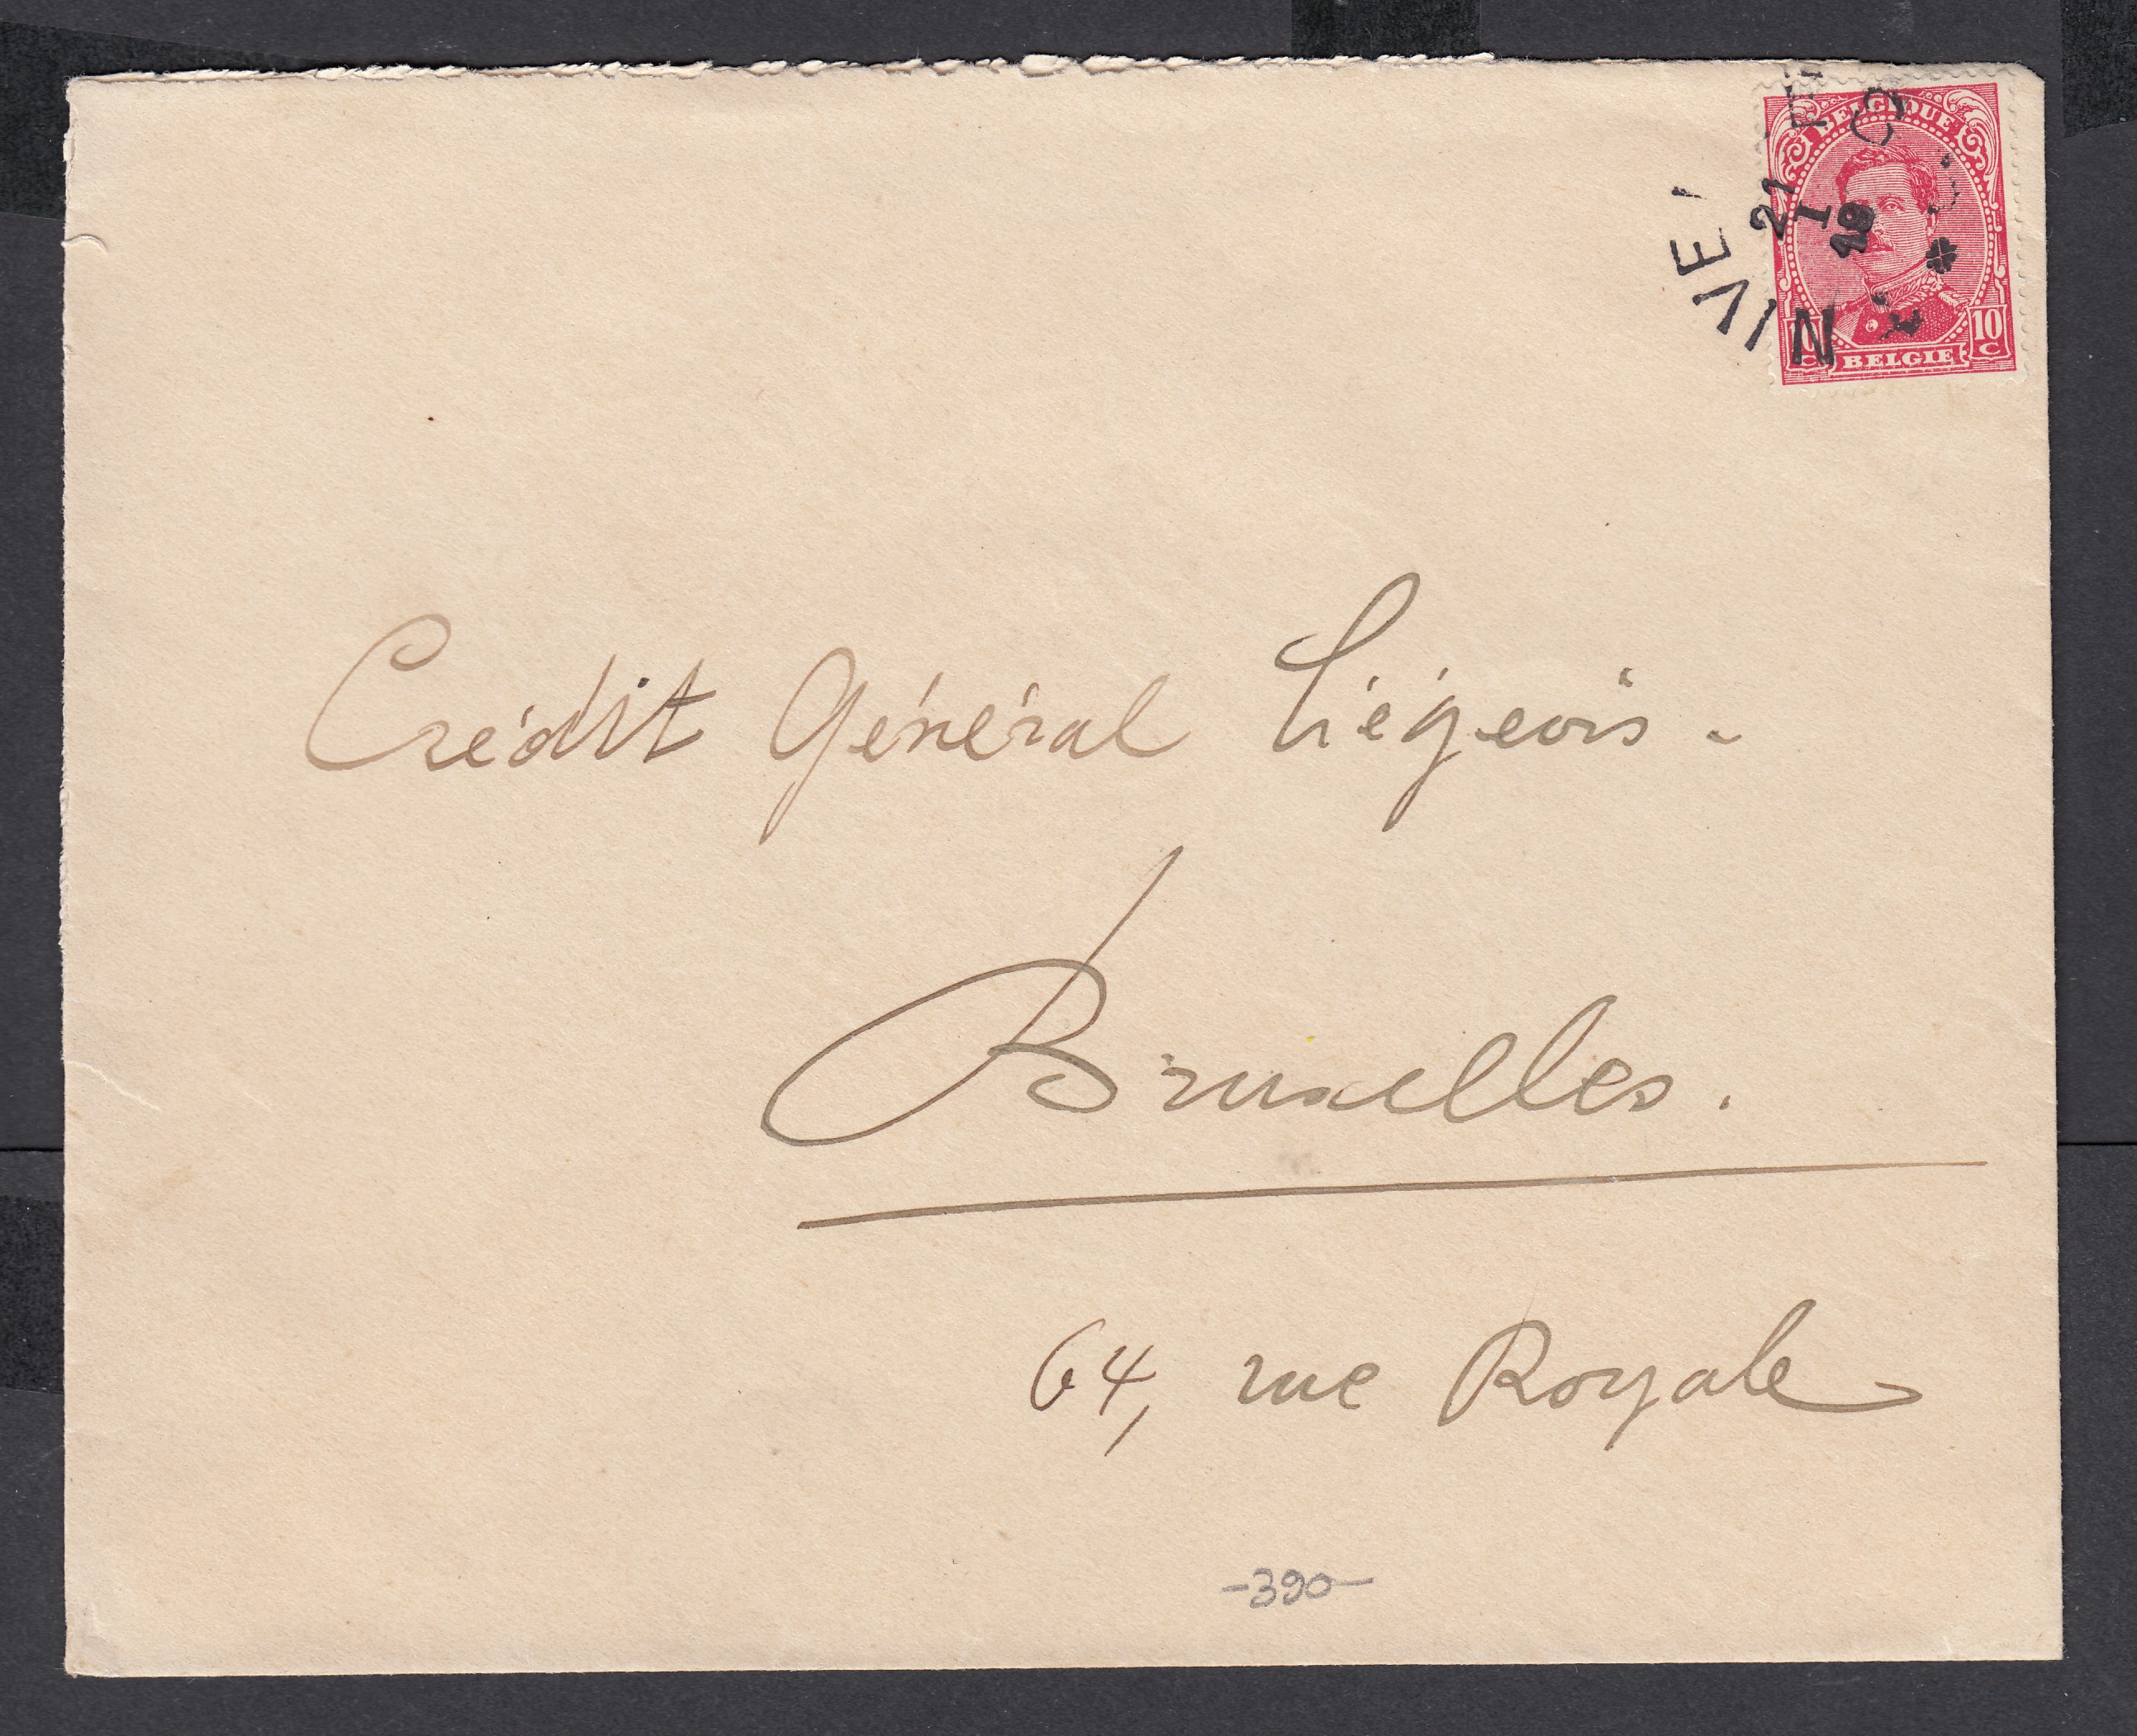 BELGIQUE
21
I
19
NIVE
10
C
BELGIE
10
C
Crédit Général Liégeois -
Bruxelles.
64, rue Royale
-390-